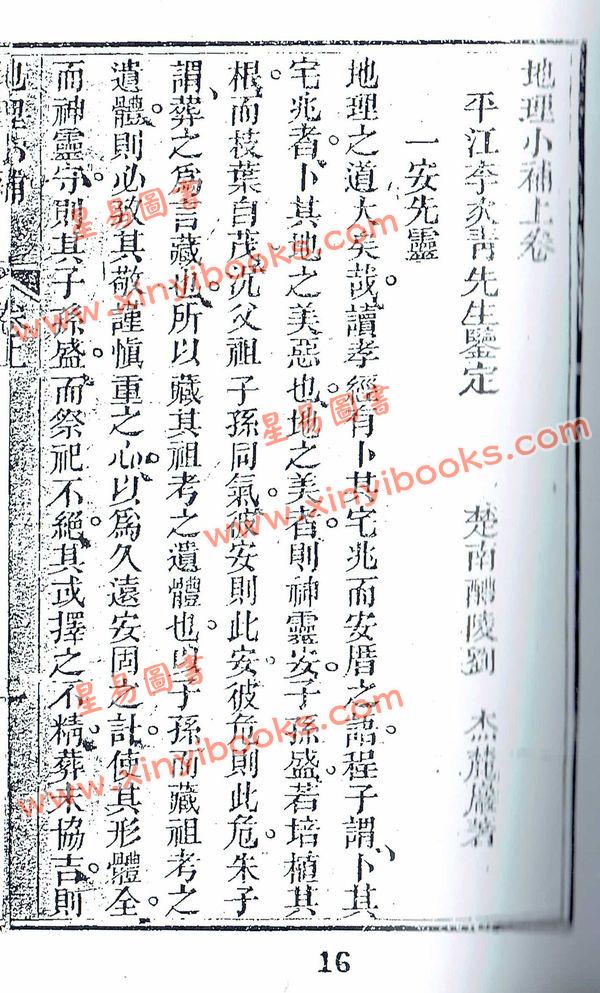 地理小補上卷
平江李次青先生鑒定　楚南醴陵劉　杰蔬嚴著
一安先靈
地理之道大矣哉。讀孝經有卜其宅兆而安厝之語程子謂、卜其
宅兆者、卜其地之美惡也。地之美者則神靈安子孫盛若培植其
根而枝葉自茂。況父祖子孫同氣彼安則此安彼危則此危。朱子
謂葬之為言藏也。所以藏其祖考之遺體也。以子孫而藏祖考之
遺體則必致其敬謹慎重之心。以為久遠安固之計。使其形體全
而神靈守則其子孫盛而祭祀不絕。其或擇之不精。葬未協吉。則
地理小補
卷上
16
星易圖書
www.xinyibooks.com
星易圖書
www.xinyibooks.com
星易圖書
www.xinyibooks.com